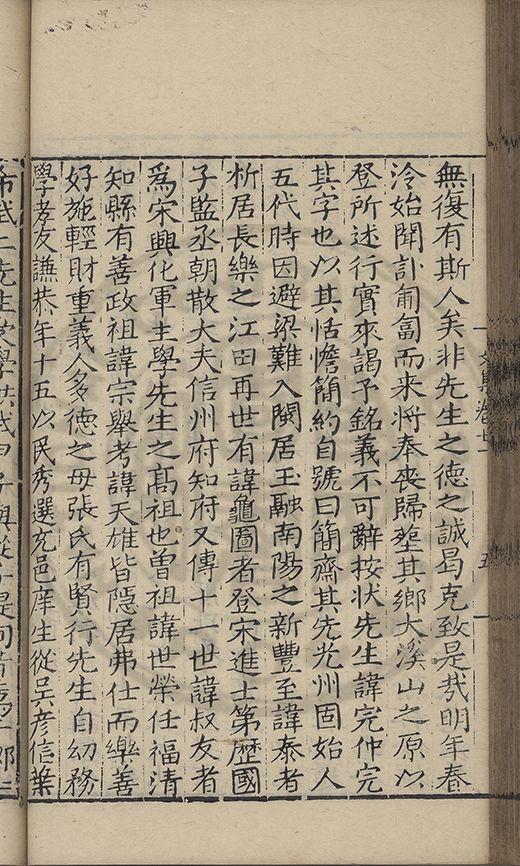 無復有斯人矣非先生之德之誠曷克致是哉明年春
泠始聞訃匍匐而来将奉丧歸塟其鄉大溪山之原以
登所述行實來謁予銘義不可辭按状先生諱完仲完
其字也以其恬憺簡約自號曰簡齋其先光州固始人
五代時因避梁難入閩居王融南陽之新豐至諱泰者
析居長樂之江田再世有諱龜圖者登宋進士第歷國
子監丞朝散大夫信州府知府又傳十一世諱叔友者
爲宋興化軍主學先生之髙祖也曽祖諱世榮任福清
知縣有善政祖諱宗舉考諱天雄皆隠居弗仕而樂善
好施輕財重義人多德之毋張氏有賢行先生自幼務
學孝友謙恭年十五以民秀選充邑庠生從吳彦信葉
文集卷七
五